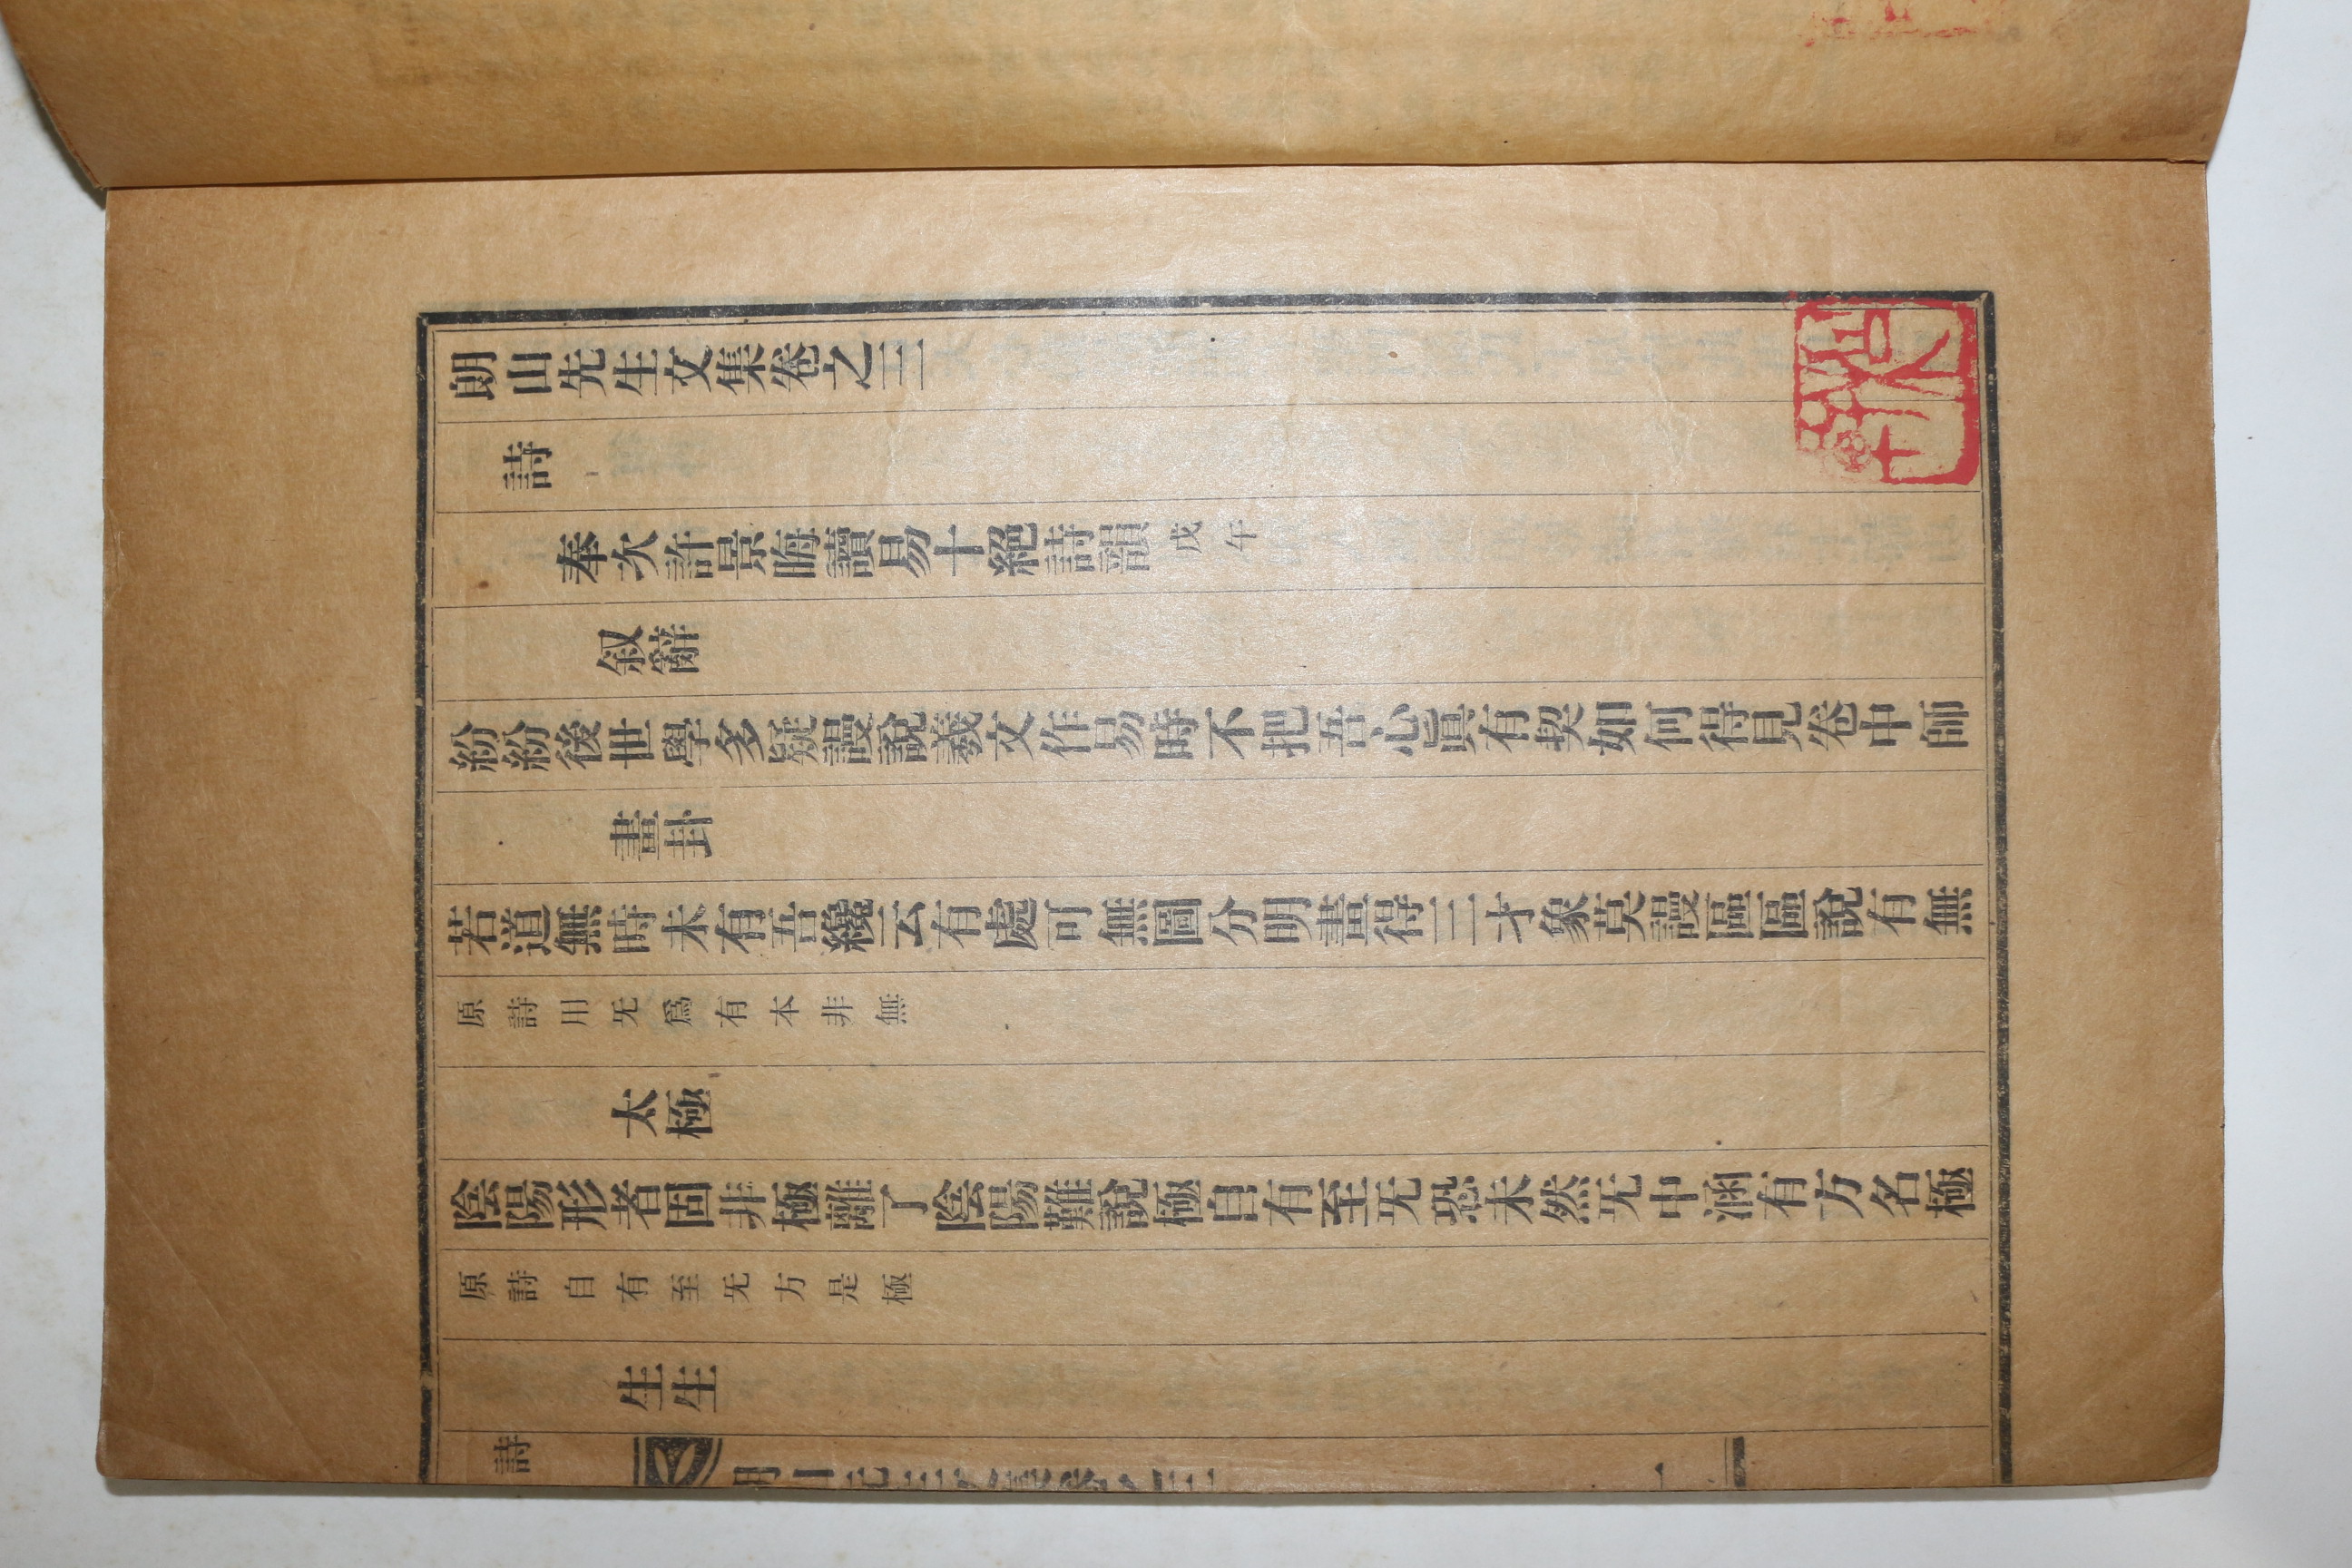 朗山先生文集卷之三
詩
奉次許景晦讀易十絕詩韻戊午
叙辭
紛紛後世學多疑謾說羲文作易時不把吾心眞有契如何得見卷中師
畫卦
若道無時未有吾纔云有處可無圖分明畫得三才象莫謾區區說有無
原詩用无爲有本非無
太極
陰陽形者固非極離了陰陽難說極自有至无恐未然无中涵有方名極
原詩自有至无方是極
生生
詩